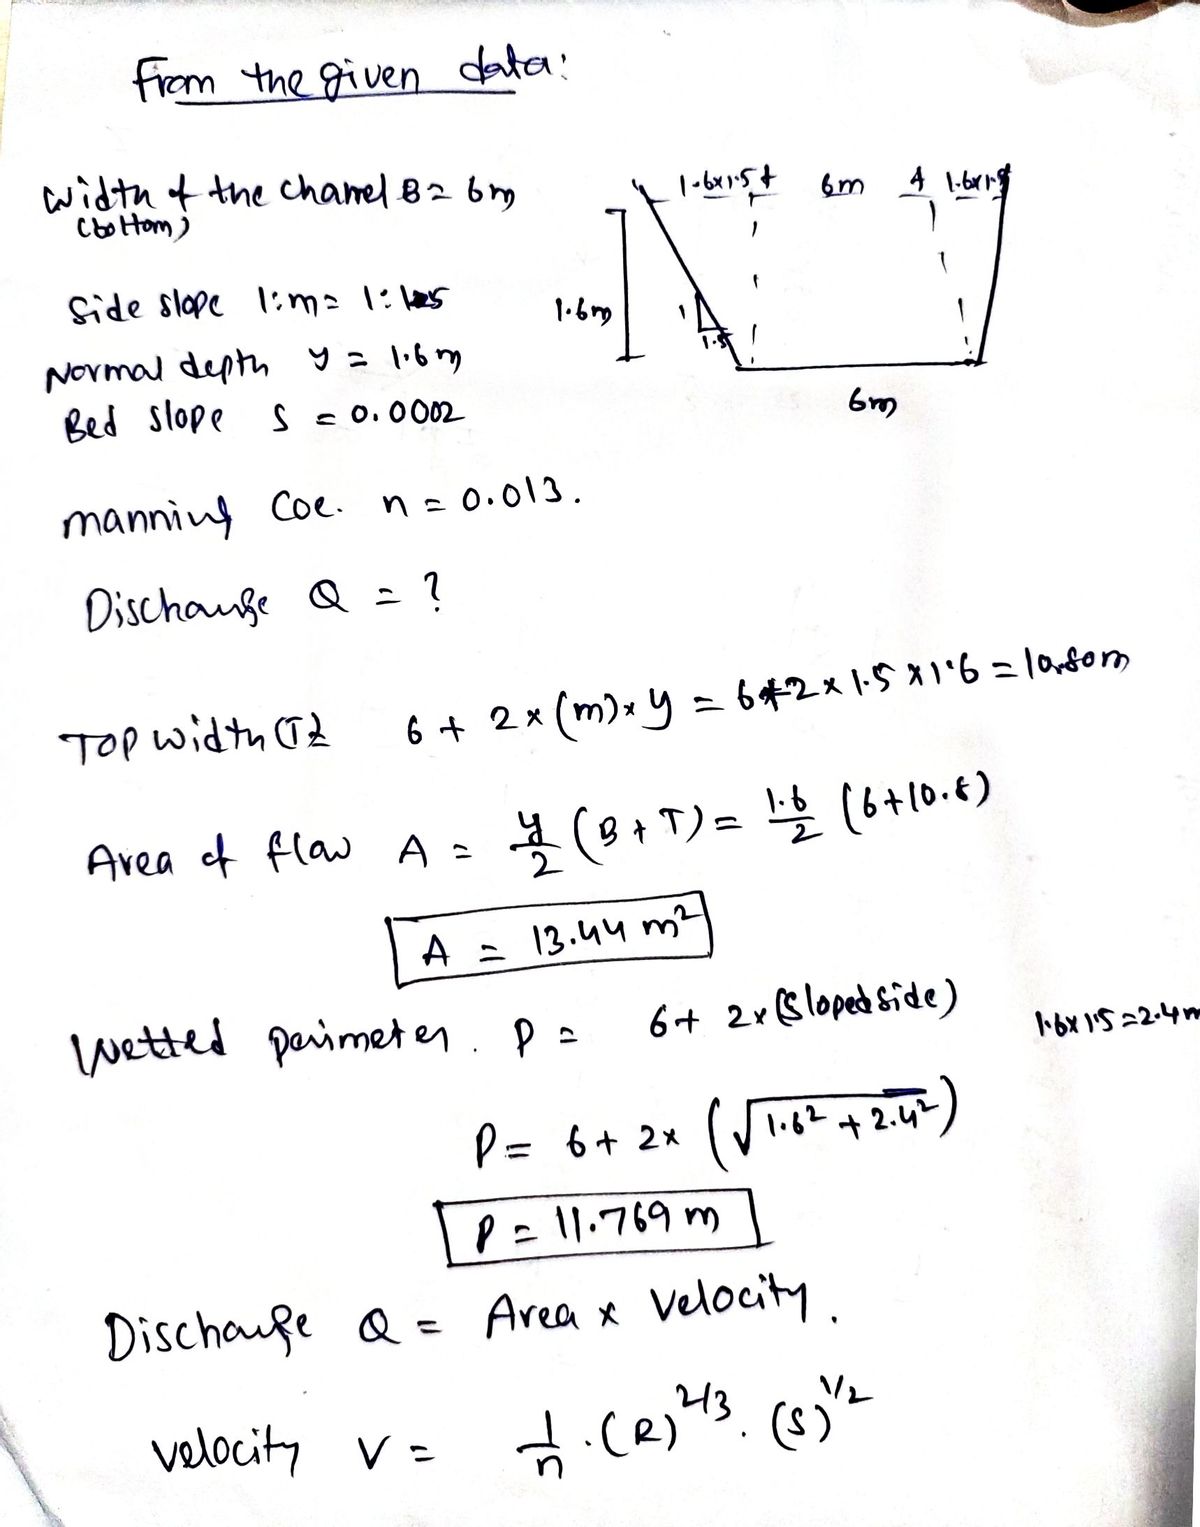 From the given data:
Width of the channel B = 6m
(bottom)
1.6x1.5 + 6m + 1.6x1.5
Side slope 1:m = 1:1.5
1.6m
1
1.5
Normal depth y = 1.6m
Bed slope S = 0.0002
6m
manning Coe. n = 0.013.
Discharge Q = ?
Top width (T) = 6 + 2 x (m) x y = 6+2 x 1.5 x 1.6 = 10.80m
Area of flow A = y/2 (B + T) = 1.6/2 (6+10.8)
A = 13.44 m²
Wetted perimeter. P = 6+ 2x (Sloped side)
1.6x1.5=2.4m
P = 6+ 2x (√1.6² + 2.4²)
P = 11.769 m
Discharge Q = Area x Velocity.
velocity V = 1/n . (R)^2/3 . (S)^1/2